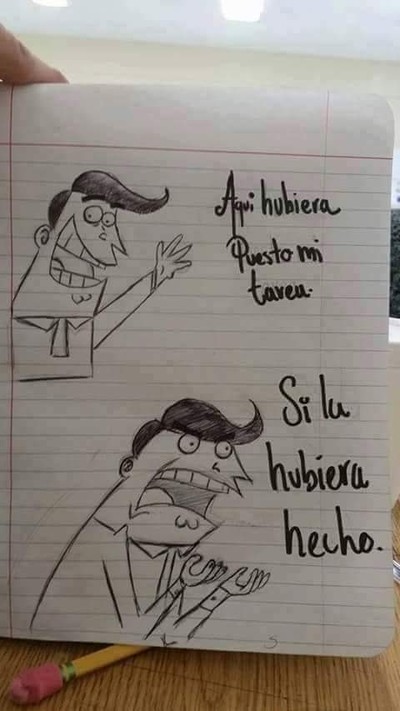 Aqui hubiera
Puesto mi
tarea.
Si la
hubiera
hecho.